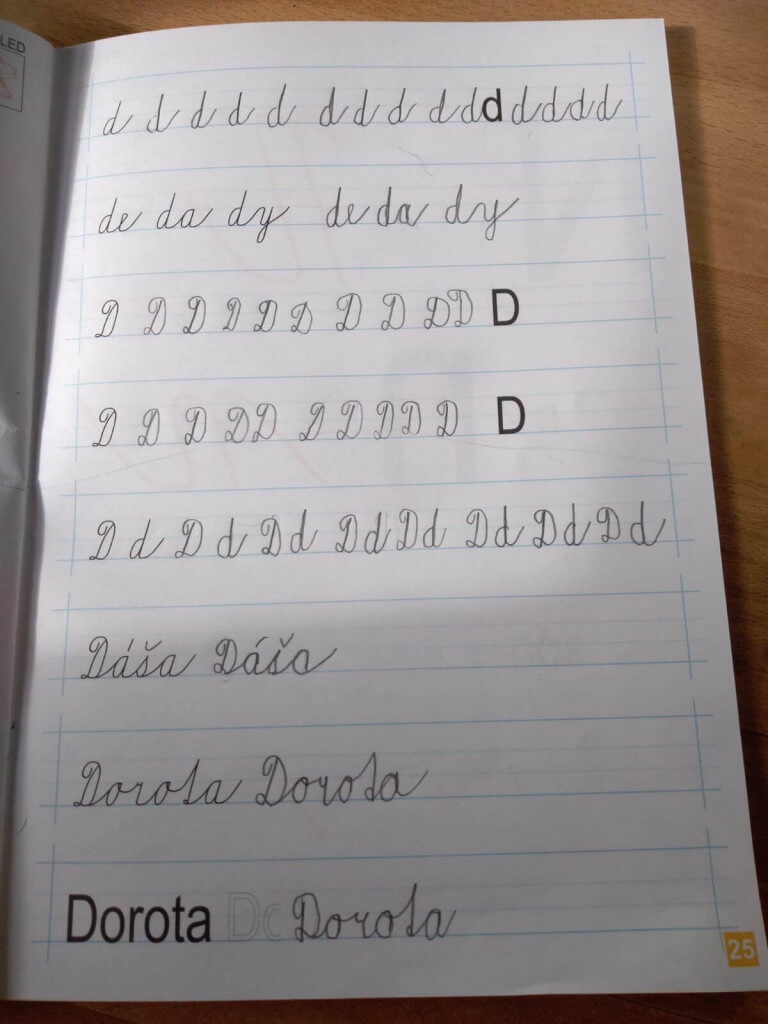 LED
d d d d d d d d d d d d d d d
de da dy de da dy
D D D D D D D D D D D
D D D D D D D D D D D
D d D d D d D d D d D d D d D d
Dáša Dáša
Dorota Dorota
Dorota Do Dorota
25